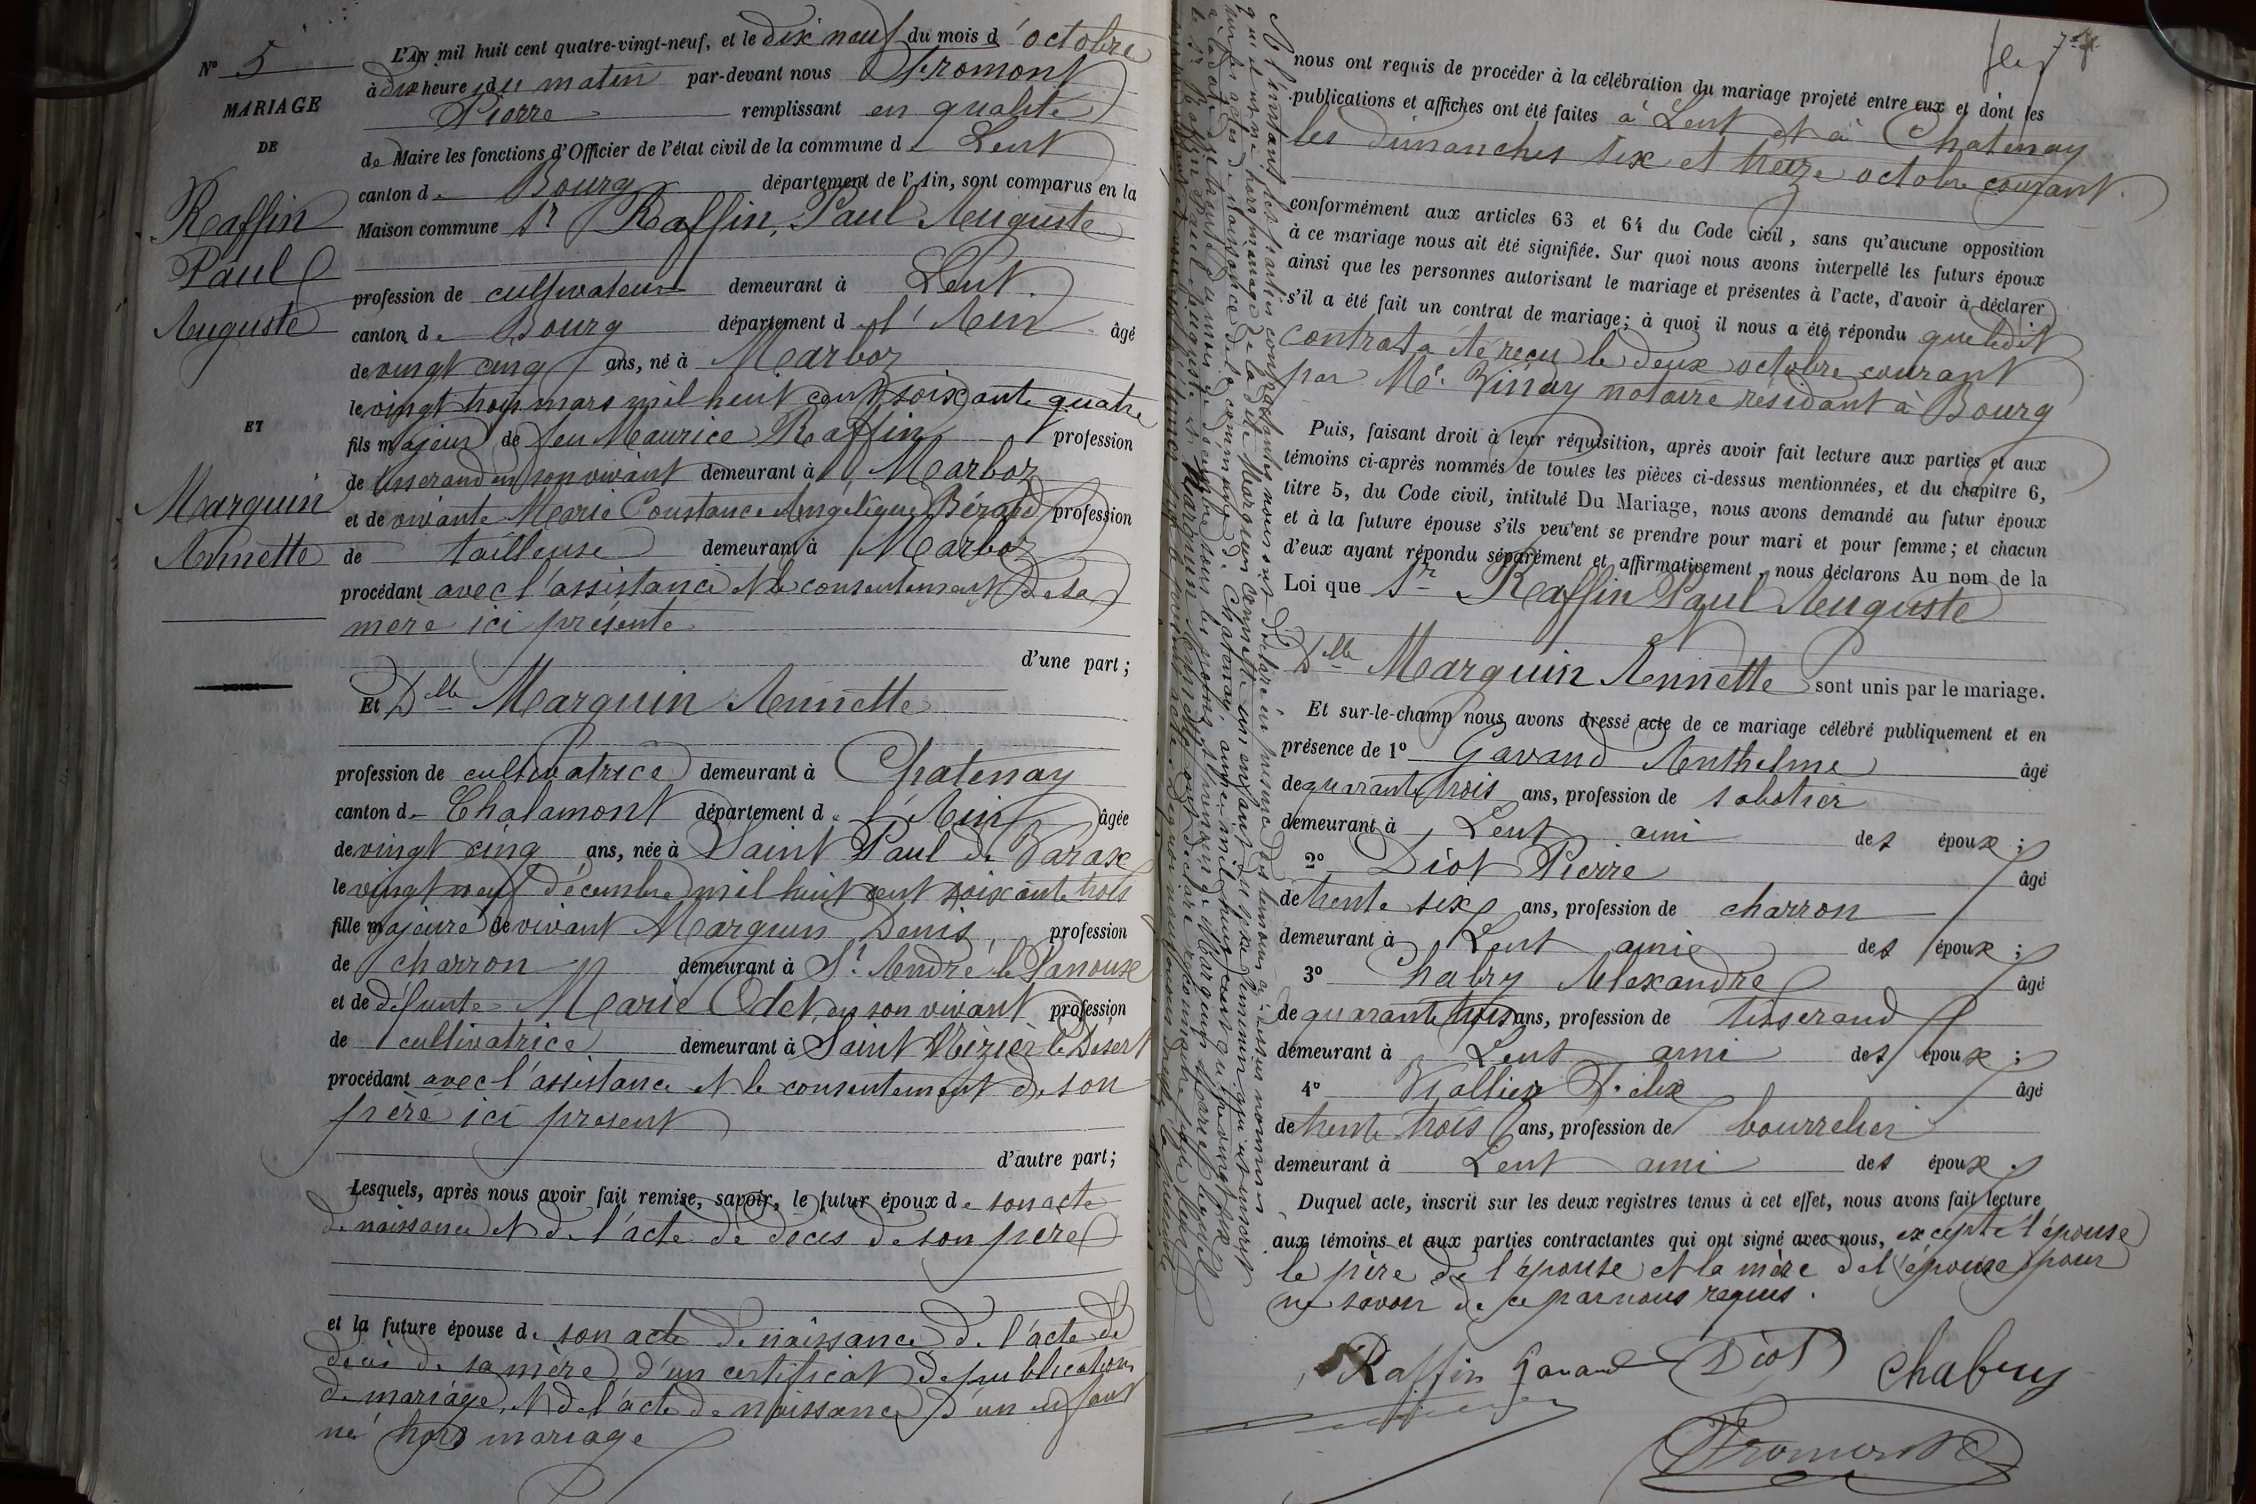 N° 5
MARIAGE
DE
Raffin
Paul
Auguste
ET
Marguin
Annette
L'AN mil huit cent quatre-vingt-neuf, et le dix neuf du mois d'octobre
à dix heure du matin par-devant nous Fromont
Pierre remplissant en qualité
de Maire les fonctions d'Officier de l'état civil de la commune de Lent
canton de Bourg département de l'Ain, sont comparus en la
Maison commune Sr Raffin, Paul Auguste
profession de cultivateur demeurant à Lent
canton de Bourg département d l'Ain âgé
de vingt cinq ans, né à Marboz
le vingt trois mars mil huit cent soixante quatre
fils majeur de feu Maurice Raffin profession
de tisserand en son vivant demeurant à Marboz
et de vivante Marie Constance Angélique Bérard profession
de tailleuse demeurant à Marboz
procédant avec l'assistance et le consentement de sa
mère ici présente
d'une part ;
Et Dlle Marguin Annette
profession de cultivatrice demeurant à Chatenay
canton de Chalamont département de l'Ain âgée
de vingt cinq ans, née à Saint Paul de Varax
le vingt neuf décembre mil huit cent soixante trois
fille majeure de vivant Marguin Denis, profession
de charron demeurant à St André le Panoux
et de défunte Marie Odet, en son vivant profession
de cultivatrice demeurant à Saint Nizier le Désert
procédant avec l'assistance et le consentement de son
père ici présent
d'autre part ;
Lesquels, après nous avoir fait remise, savoir, le futur époux de son acte
de naissance et de l'acte de décès de son père
et la future épouse de son acte de naissance, de l'acte de
décès de sa mère, d'un certificat de publication
de mariage, et de l'acte de naissance d'un enfant
né hors mariage
nous ont requis de procéder à la célébration du mariage projeté entre eux et dont les
publications et affiches ont été faites à Lent et à Chatenay
les dimanches six et treize octobre courant.
conformément aux articles 63 et 64 du Code civil, sans qu'aucune opposition
à ce mariage nous ait été signifiée. Sur quoi nous avons interpellé les futurs époux
ainsi que les personnes autorisant le mariage et présentes à l'acte, d'avoir à déclarer
s'il a été fait un contrat de mariage ; à quoi il nous a été répondu que ledit
contrat a été reçu le deux octobre courant
par Me notaire résidant à Bourg
Puis, faisant droit à leur réquisition, après avoir fait lecture aux parties et aux
témoins ci-après nommés de toutes les pièces ci-dessus mentionnées, et du chapitre 6,
titre 5, du Code civil, intitulé Du Mariage, nous avons demandé au futur époux
et à la future épouse s'ils veulent se prendre pour mari et pour femme ; et chacun
d'eux ayant répondu séparément et affirmativement, nous déclarons Au nom de la
Loi que Sr Raffin Paul Auguste
Dlle Marguin Annette sont unis par le mariage.
Et sur-le-champ nous avons dressé acte de ce mariage célébré publiquement et en
présence de 1° Gavand Anthelme âgé
de quarante trois ans, profession de sabotier
demeurant à Lent ami des époux ;
2° Diot Pierre âgé
de trente six ans, profession de charron
demeurant à Lent amie des époux ;
3° Chabry Alexandre âgé
de quarante trois ans, profession de tisserand
demeurant à Lent ami des époux ;
4° Félix âgé
de trente trois ans, profession de bourrelier
demeurant à Lent ami des époux.
Duquel acte, inscrit sur les deux registres tenus à cet effet, nous avons fait lecture
aux témoins et aux parties contractantes qui ont signé avec nous, excepté l'épouse
le père de l'épouse et la mère de l'épouse pour
ne savoir de ce par nous requis.
Raffin Gavand Diot Chabry
Fromont
A l'instant les parties contractantes nous ont déclaré en présence des témoins ci-dessus nommés